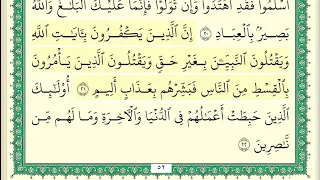 اَسْلَمُوا فَقَدِ اهْتَدَوا وَإِن تَوَلَّوْا فَإِنَّمَا عَلَيْكَ الْبَلَٰغُ وَاللَّهُ
بَصِيرٌ بِالْعِبَادِ ٢٠ إِنَّ الَّذِينَ يَكْفُرُونَ بِـَٔايَٰتِ اللَّهِ
وَيَقْتُلُونَ النَّبِيِّـۧنَ بِغَيْرِ حَقٍّ وَيَقْتُلُونَ الَّذِينَ يَأْمُرُونَ
بِالْقِسْطِ مِنَ النَّاسِ فَبَشِّرْهُم بِعَذَابٍ أَلِيمٍ ٢١ أُو۟لَٰٓئِكَ
الَّذِينَ حَبِطَتْ أَعْمَٰلُهُمْ فِى الدُّنْيَا وَالْءَاخِرَةِ وَمَا لَهُم مِّن
نَّٰصِرِينَ ٢٢
٥٢